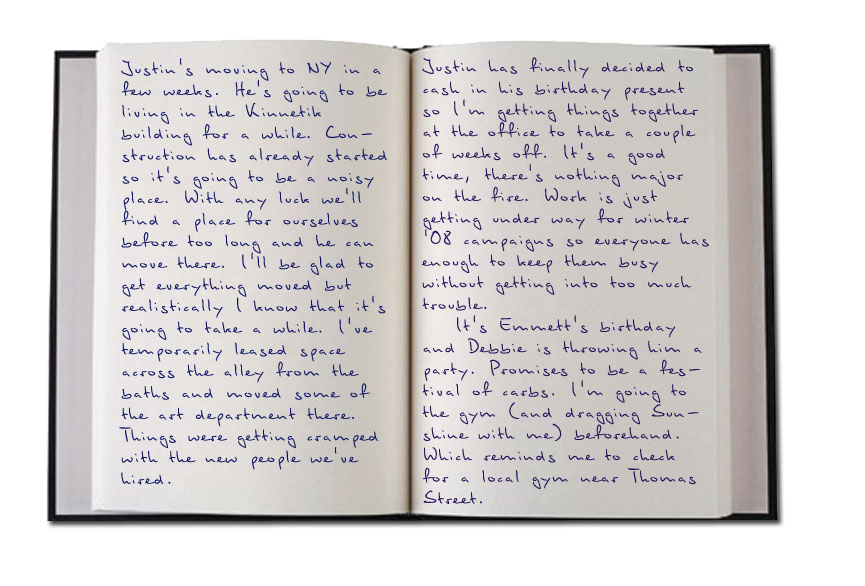 Justin's moving to NY in a
few weeks. He's going to be
living in the Kinnetik
building for a while. Con-
struction has already started
so it's going to be a noisy
place. With any luck we'll
find a place for ourselves
before too long and he can
move there. I'll be glad to
get everything moved but
realistically I know that it's
going to take a while. I've
temporarily leased space
across the alley from the
baths and moved some of
the art department there.
Things were getting cramped
with the new people we've
hired.
Justin has finally decided to
cash in his birthday present
so I'm getting things together
at the office to take a couple
of weeks off. It's a good
time, there's nothing major
on the fire. Work is just
getting under way for winter
'08 campaigns so everyone has
enough to keep them busy
without getting into too much
trouble.
It's Emmett's birthday
and Debbie is throwing him a
party. Promises to be a fes-
tival of carbs. I'm going to
the gym (and dragging Sun-
shine with me) beforehand.
Which reminds me to check
for a local gym near Thomas
Street.